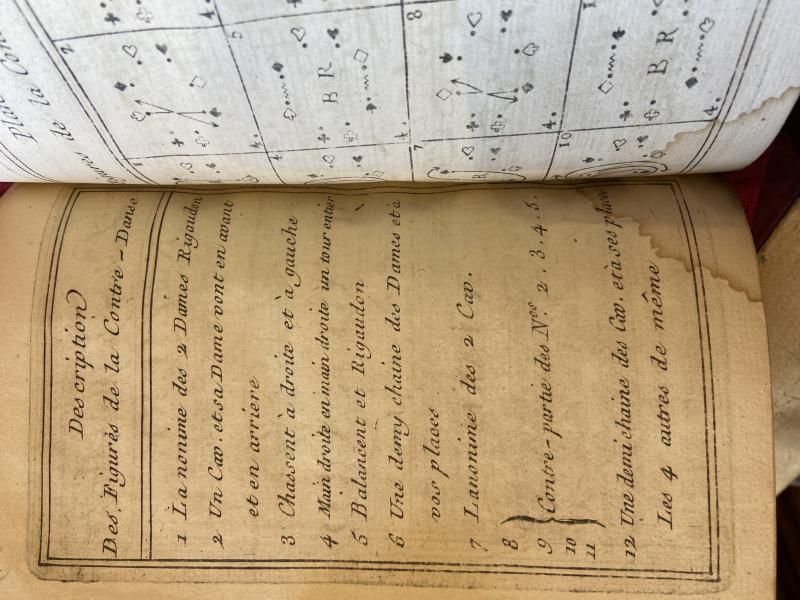 Description
Des Figurés de la Contre - Danse
1 La nonime des 2 Dames Rigaudon
2 Un Cav. et sa Dame vont en avant
et en arriere
3 Chassent à droite et à gauche
4 Main droite en main droite un tour entier
5 Balancent et Rigaudon
6 Une demy chaine dee Dames et à
vos places
7 Lanonime des 2 Cav.
8
9 Contre-partie des Nos. 2. 3. 4. 5.
10
11
12 Une demi chaine des Cav. et à ses places
Les 4 autres de même
de la
2
5
8
B R
B R
4.
4.
4.
4.
1
4
7
10